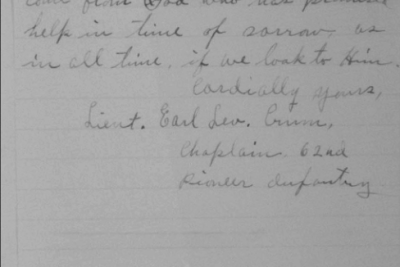 come from God who has promised
help in time of sorrow, as
in all time, if we look to Him.
Cordially yours,
Lieut. Earl Lev. Crum,
Chaplain 62nd
Pioneer Infantry